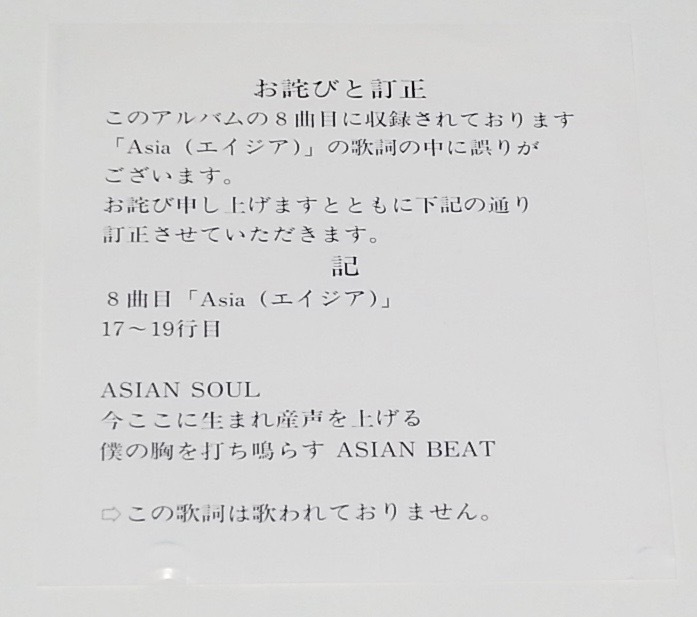 お詫びと訂正
このアルバムの８曲目に収録されております
「Asia（エイジア）」の歌詞の中に誤りが
ございます。
お詫び申し上げますとともに下記の通り
訂正させていただきます。
記
８曲目「Asia（エイジア）」
17～19行目
ASIAN SOUL
今ここに生まれ産声を上げる
僕の胸を打ち鳴らす ASIAN BEAT
⇨この歌詞は歌われておりません。